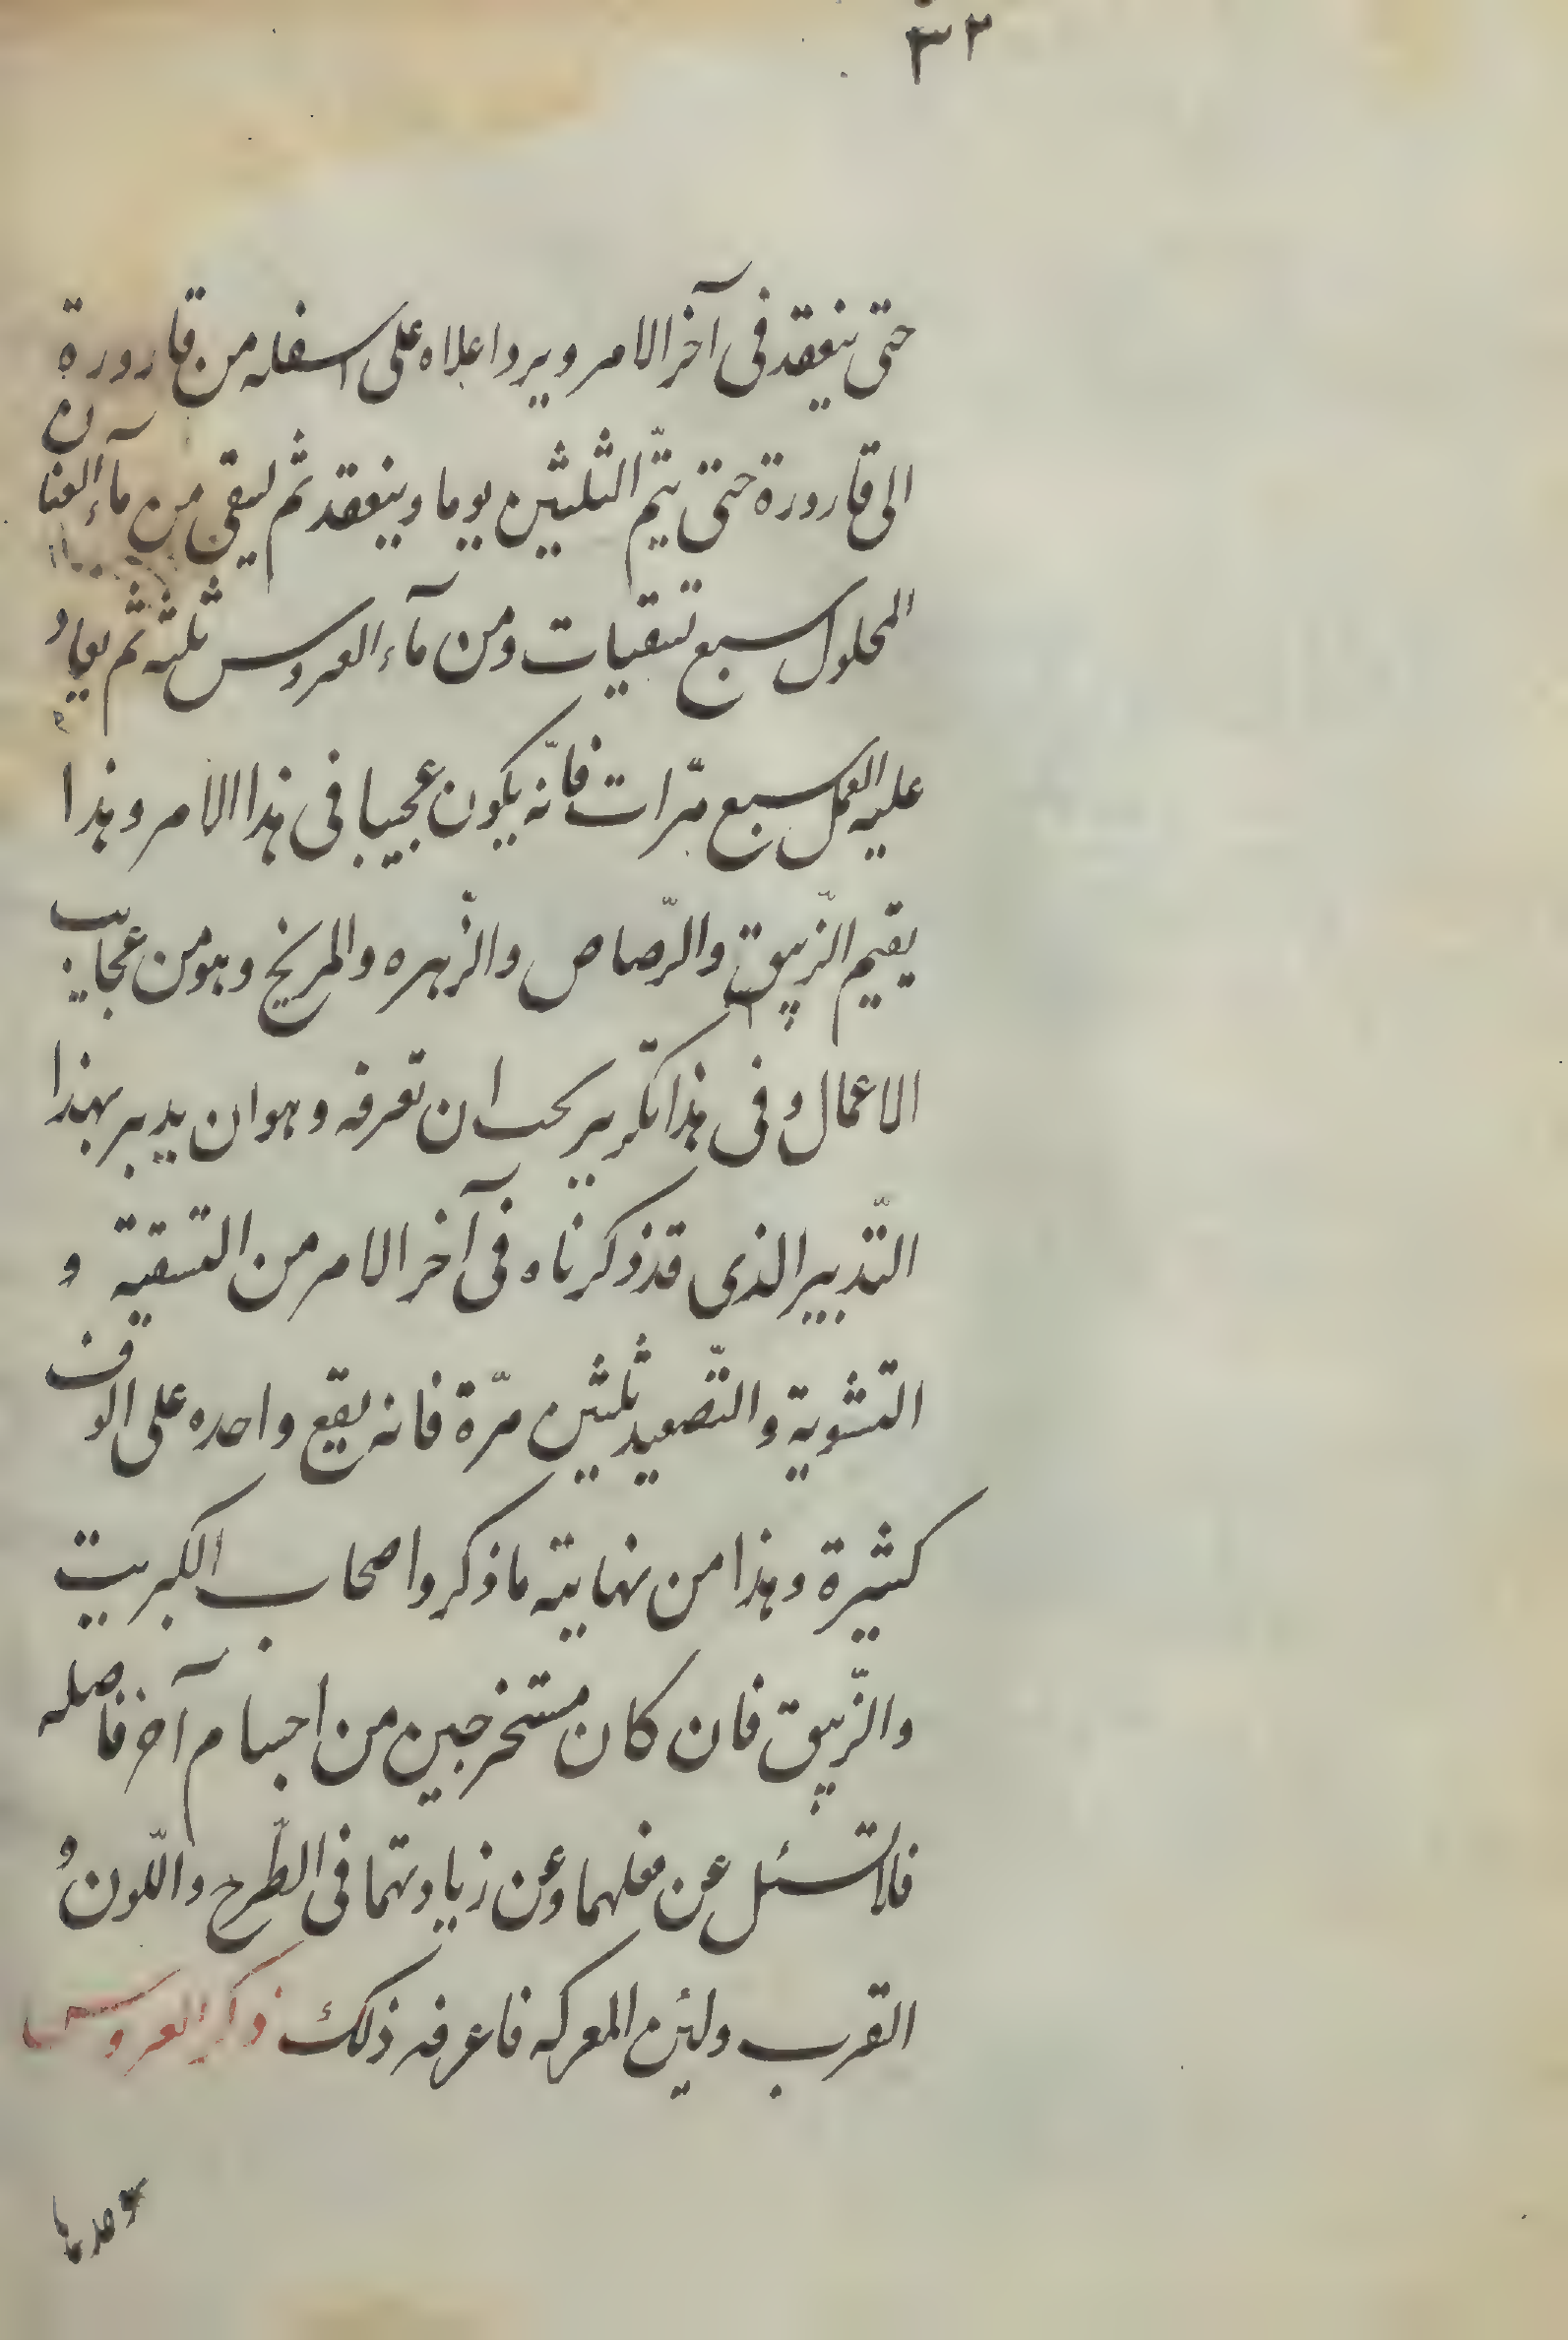 ٣٣
حتى ينعقد فى آخر الامر ويرد اعلاه على اسفله من قارورة
الى قارورة حتى يتمّ الثلثين يوما وينعقد ثم ليقى من مآء العنا
المحلول سبع تسقيات ومن مآء العروس ثلثه ثم يعاد
عليه العمل سبع مرّات فانّه يكون عجيبا فى هذا الامر وهذا
يقيم الزّيبق والرّصاص والزّهره والمريخ وهو من عجايب
الاعمال وفى هذا تكرير يجب ان تعرفه وهو ان يدبر بهذا
التّدبير الذى قد ذكرناه فى آخر الامر من التسقية و
التشوية والتّصعيد ثلثين مرّة فانه يقع واحده على الوف
كثيرة وهذا من نهايته ما ذكروا صحاب الكبريت
والزّيبق فان كان مستخرجين من اجسام آخر فاصله
فلا تسئل عن فعلهما وعن زيادتهما فى الطّرح واللّون و
القرب ولين المعركه فاعرفه ذلك ذكر العروس